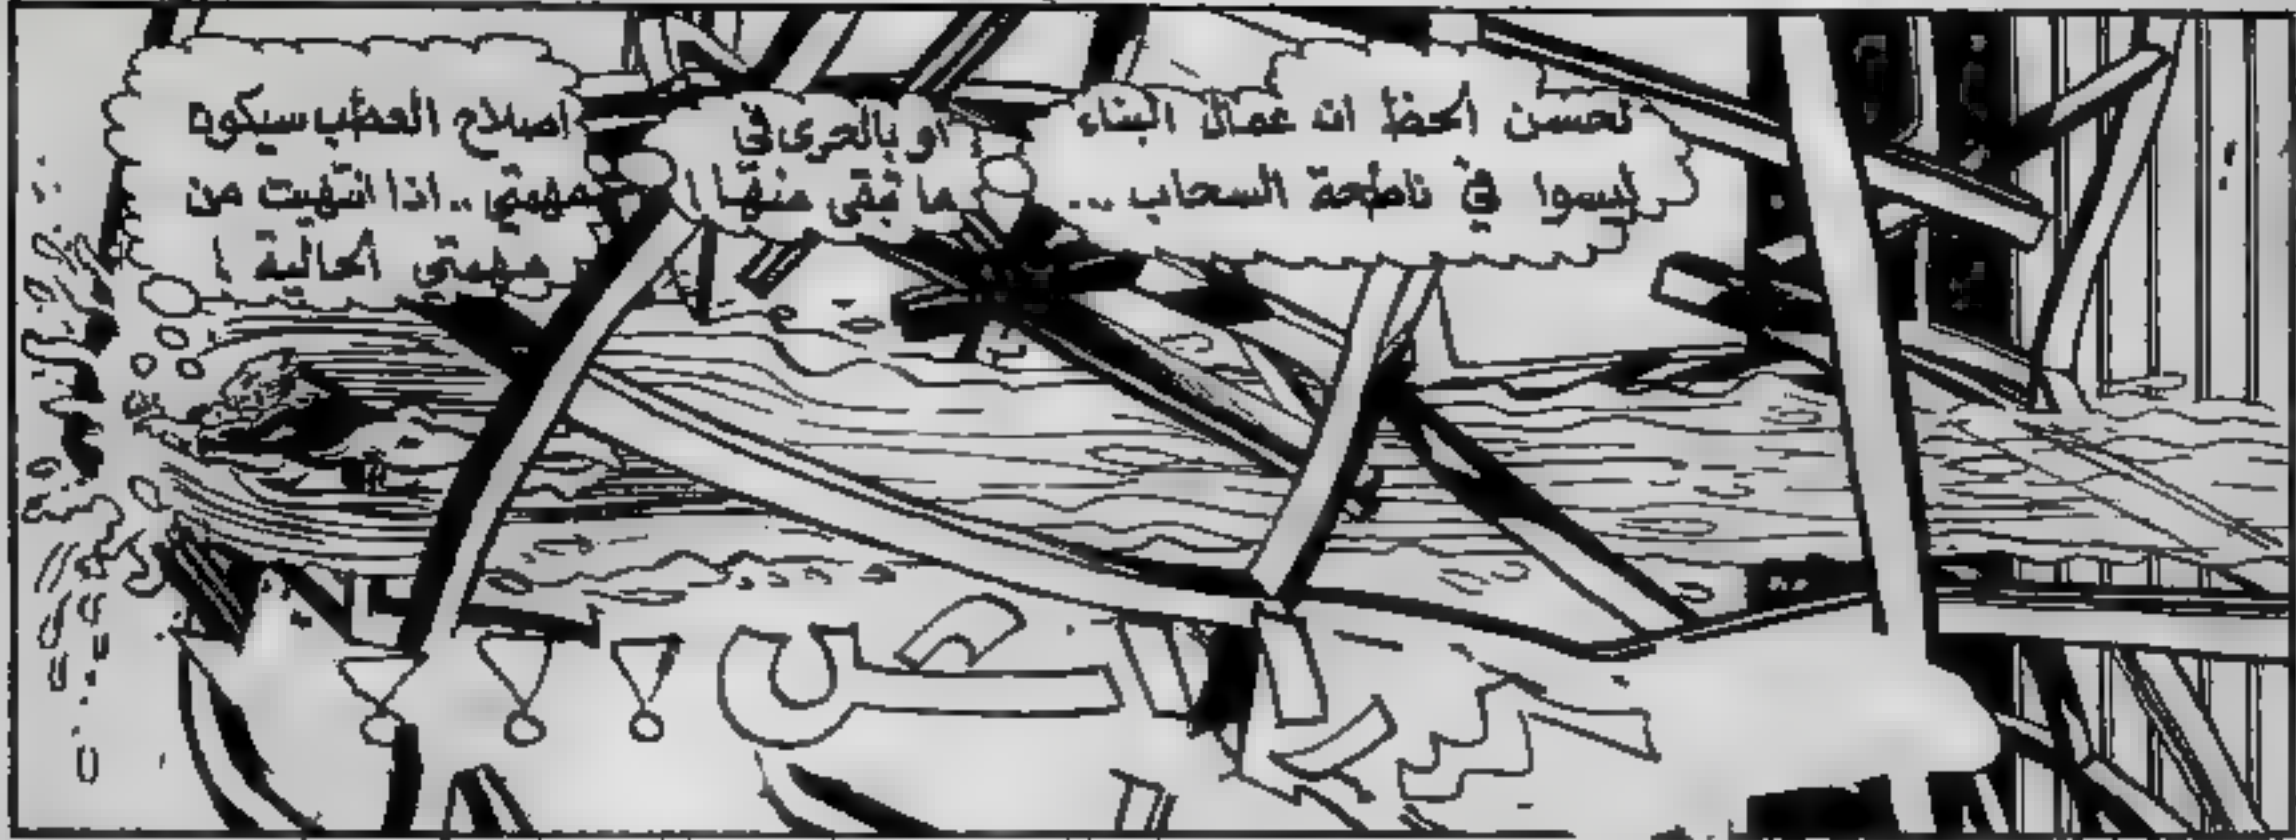 لحسن الحظ ان عمال البناء
ليسوا في ناطحة السحاب ..
او بالحرى في
ما تبقى منها !
اصلاح العطب سيكون
مهمتي .. اذا انتهيت من
مهمتي الحالية !